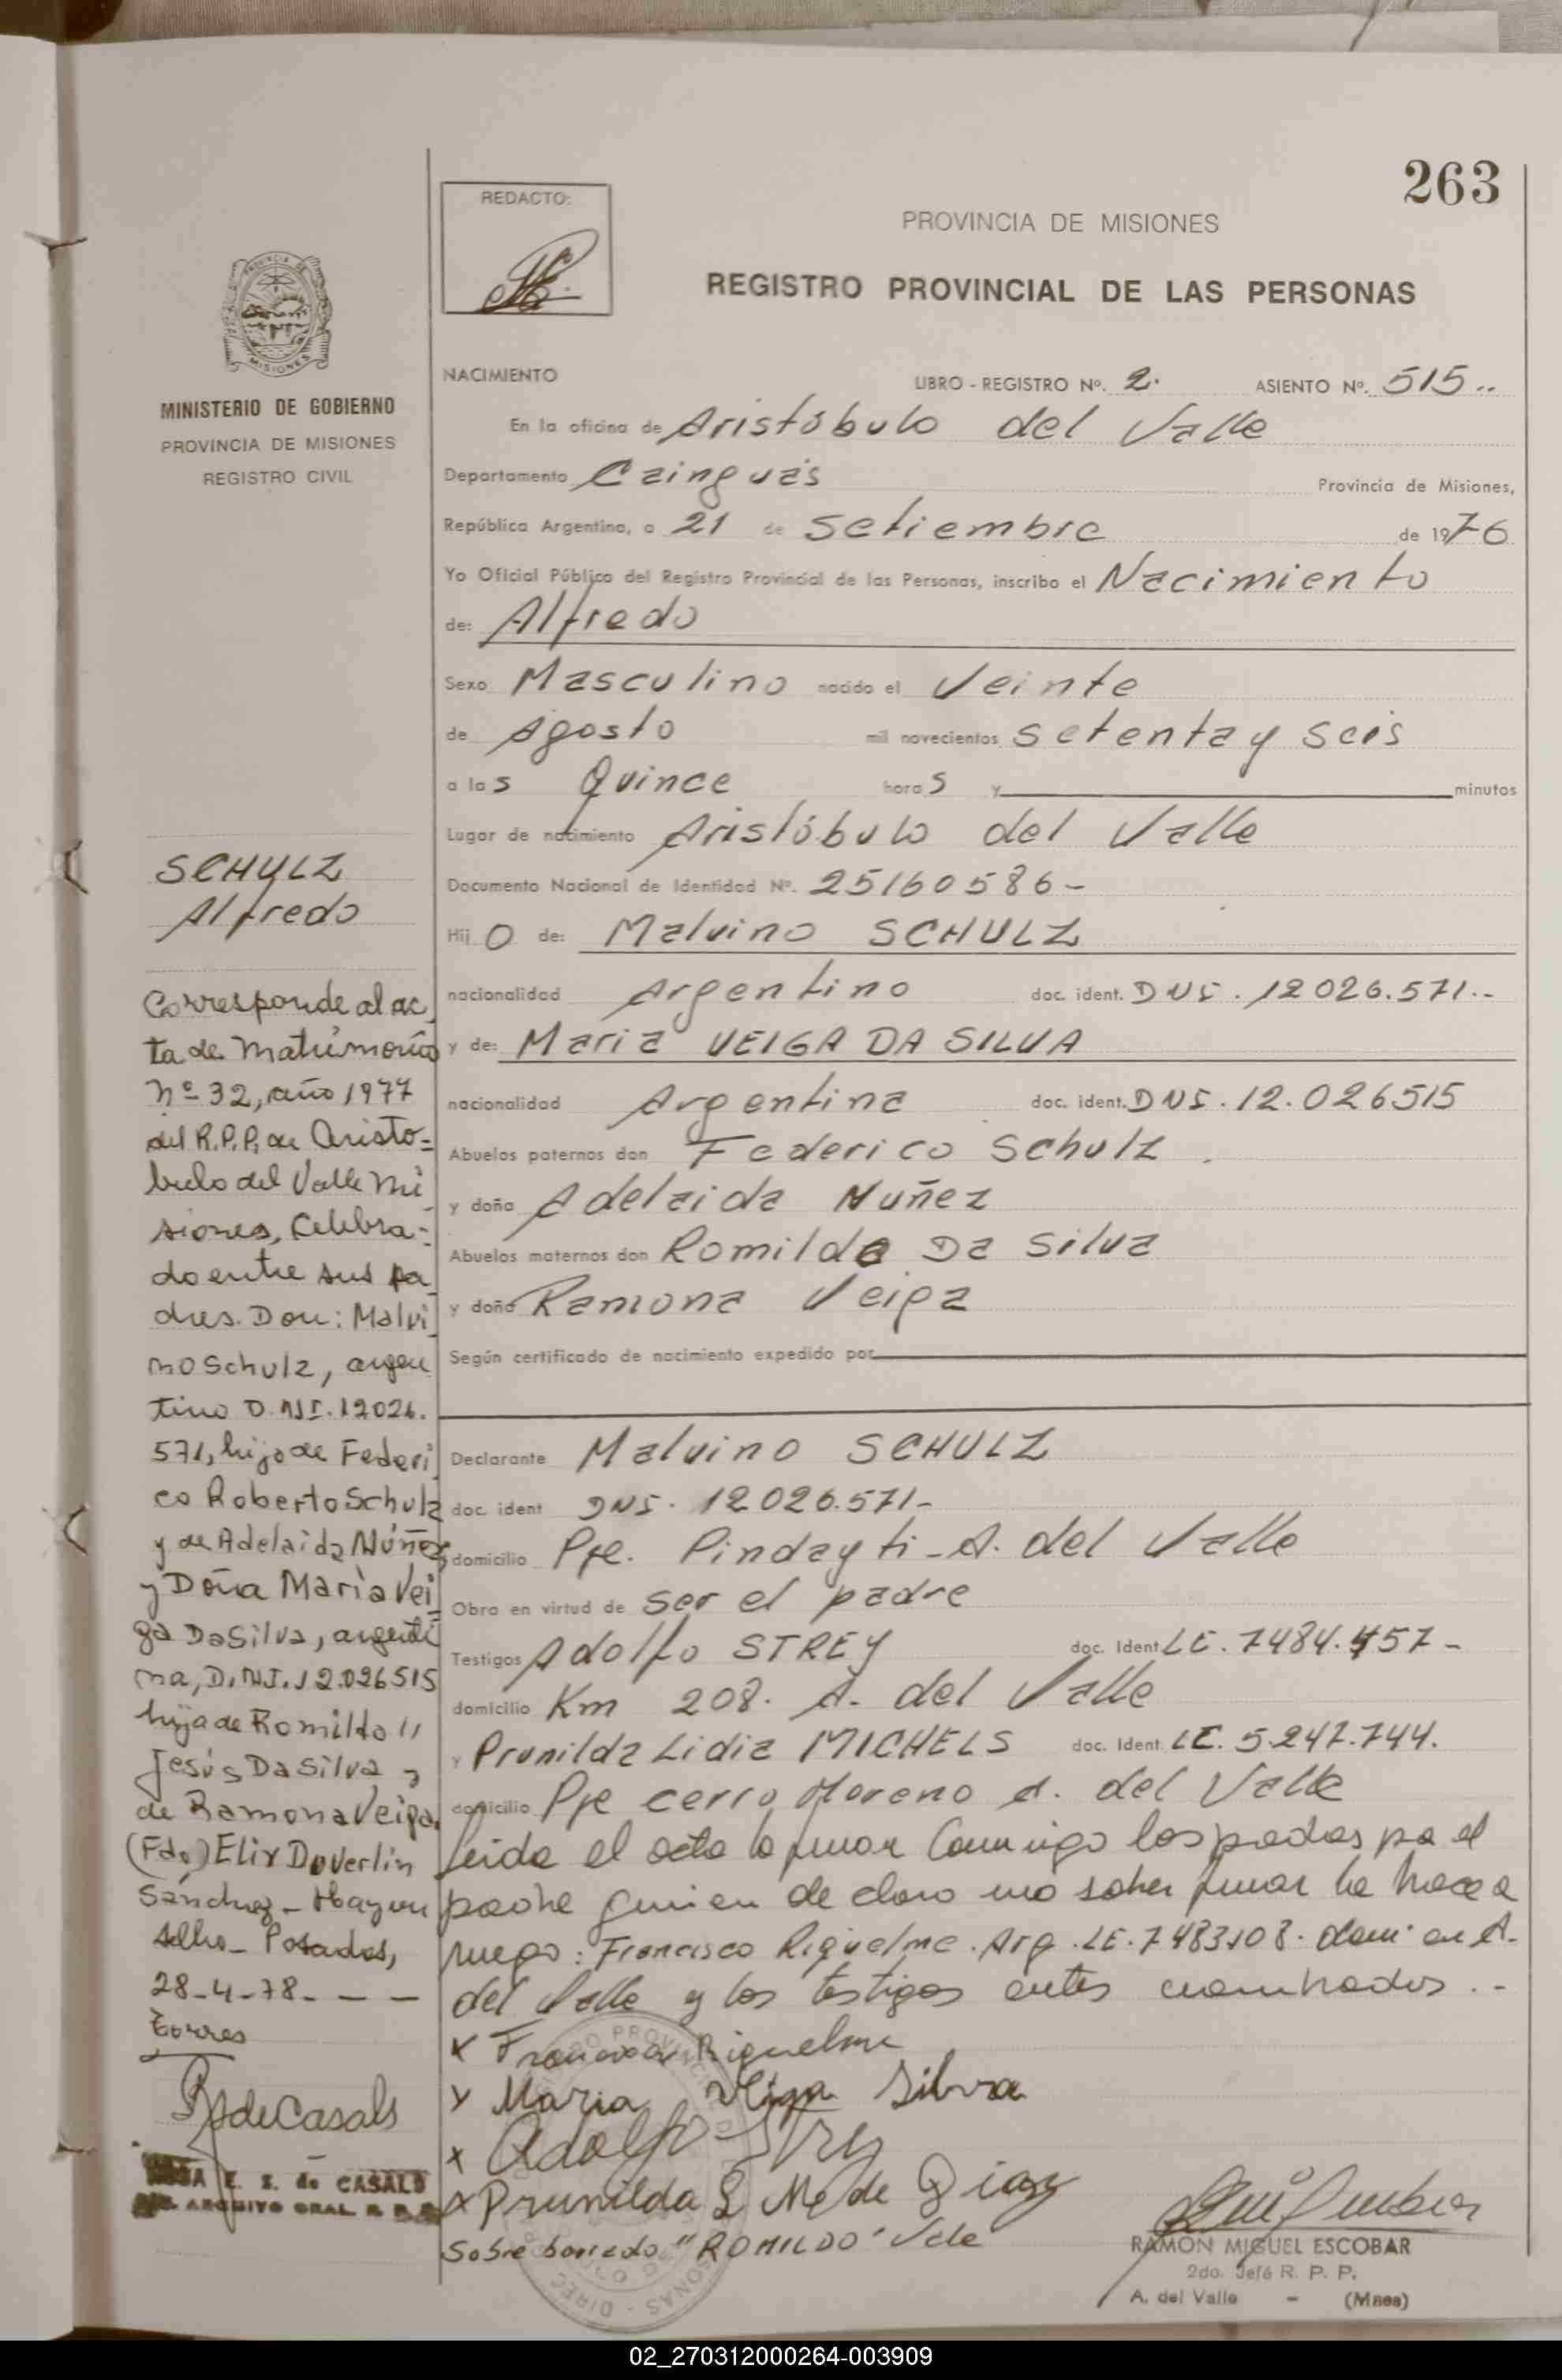 263
REDACTO:
PROVINCIA DE MISIONES
REGISTRO PROVINCIAL DE LAS PERSONAS
MINISTERIO DE GOBIERNO
PROVINCIA DE MISIONES
REGISTRO CIVIL
NACIMIENTO LIBRO - REGISTRO Nº. 2. ASIENTO Nº. 515..
En la oficina de Aristóbulo del Valle
Departamento Cainguás Provincia de Misiones,
República Argentina, a 21 de Setiembre de 1976
Yo Oficial Público del Registro Provincial de las Personas, inscribo el Nacimiento
de: Alfredo
Sexo Masculino nacido el Veinte
de Agosto mil novecientos setenta y seis
a las Quince horas y minutos
Lugar de nacimiento Aristóbulo del Valle
Documento Nacional de Identidad Nº. 25160586-
Hijo de: Malvino SCHULZ
nacionalidad Argentino doc. ident. DNI. 12026.571.-
y de: Maria VEIGA DA SILVA
nacionalidad Argentina doc. ident. DNI. 12.026515
Abuelos paternos don Federico Schulz.
y doña Adelaida Nuñez
Abuelos maternos don Romildo Da Silva
y doña Ramona Veiga
Según certificado de nacimiento expedido por
Declarante Malvino SCHULZ
doc. ident DNI. 12026.571-
domicilio Pje. Pindayti-A. del Valle
Obra en virtud de ser el padre
Testigos Adolfo STREY doc. Ident LE. 7484.457-
domicilio Km 208. A. del Valle
y Prunilda Lidia MICHELS doc. Ident LC. 5.247.744.
domicilio Pje cerro Moreno A. del Valle
Leida el acta la firman Conmigo los padres por el
padre quien declara no saber firmar lo hace a
ruego: Francisco Riquelme. Arg. LE. 7483108. dom. en A.
del Valle y los testigos antes nombrados..-
x Francisco Riquelme
x Maria Veiga Silva
x Adolfo Strey
x Prunilda L M de Diaz
Sobre borrado "ROMILDO" Vale
RAMON MIGUEL ESCOBAR
2do. Jefe R. P. P.
A. del Valle - (Mnes)
SCHULZ
Alfredo
Corresponde al ac
ta de Matrimonio
Nº 32, año 1977
del R.P.P. de Aristo=
bulo del Valle Mi
siones, Celebra=
do entre sus pa
dres. Don: Malvi
no Schulz, argen
tino D.N.I. 12026.
571, hijo de Federi
co Roberto Schulz
y de Adelaida Núñez
y Doña María Vei
ga Da Silva, argenti
na, D.N.I. 12.026515
hija de Romildo //
Jesús Da Silva y
de Ramona Veiga.
(Fdo) Elix Doverlin
Sánchez - Hay un
sello - Posadas,
28-4-78- - -
Torres
RdeCasals
E. S. de CASALS
ARCHIVO GRAL R. P. P.
02_270312000264-003909